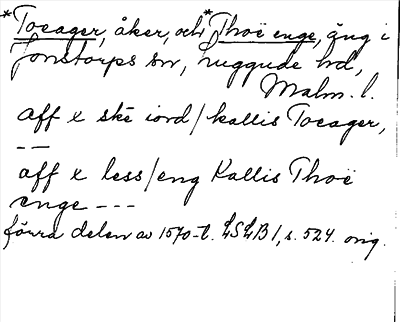 *Toeager, åker, och *Thoë enge, äng i
Jonstorps sn, Luggude hd,
Malm. l.
aff x ske iord / kallis Toeager,
– –
aff x less / eng Kallis Thoë
enge – – –
förra delen av 1570-t. LSLB 1, s. 524. orig.